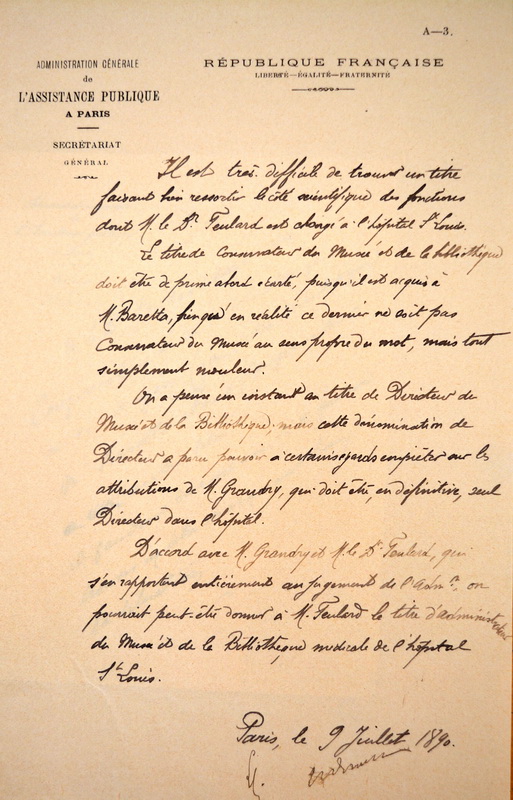 A—3.
ADMINISTRATION GÉNÉRALE
de
L'ASSISTANCE PUBLIQUE
A PARIS
SECRÉTARIAT
GÉNÉRAL
RÉPUBLIQUE FRANÇAISE
LIBERTÉ—ÉGALITÉ—FRATERNITÉ
Il est très difficile de trouver un titre
faisant bien ressortir le côté scientifique des fonctions
dont M. le Dr Feulard est chargé à l'hôpital St Louis.
Le titre de Conservateur du Musée et de la bibliothèque
doit être de prime abord écarté, puisqu'il est acquis à
M. Baretta, bien qu'en réalité ce dernier ne soit pas
Conservateur du Musée au sens propre du mot, mais tout
simplement mouleur.
On a pensé un instant au titre de Directeur du
Musée et de la Bibliothèque; mais cette dénomination de
Directeur a paru pouvoir à certains égards empiéter sur les
attributions de M. Grandry, qui doit être, en définitive, seul
Directeur dans l'hôpital.
D'accord avec M. Grandry et M. le Dr Feulard, qui
s'en rapportent entièrement au jugement de l'Admon, on
pourrait peut-être donner à M. Feulard le titre d'administrateur
du Musée et de la Bibliothèque médicale de l'hôpital
St Louis.
Paris, le 9 Juillet 1890.